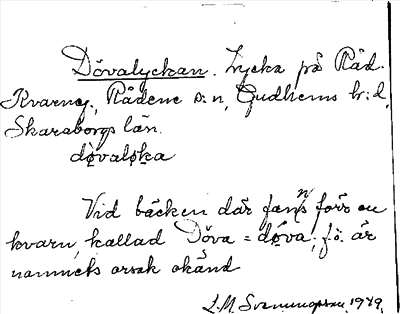 Dövalyckan. Lycka på Råd.
Kvarneg., Rådene s:n, Gudhems h:d,
Skaraborgs län.
dø̱valø̱ka
Vid bäcken där fanns förr en
kvarn, kallad Döva = dø̱va; f.ö. är
namnets orsak okänd
L.M. Svenungsson, 1949.